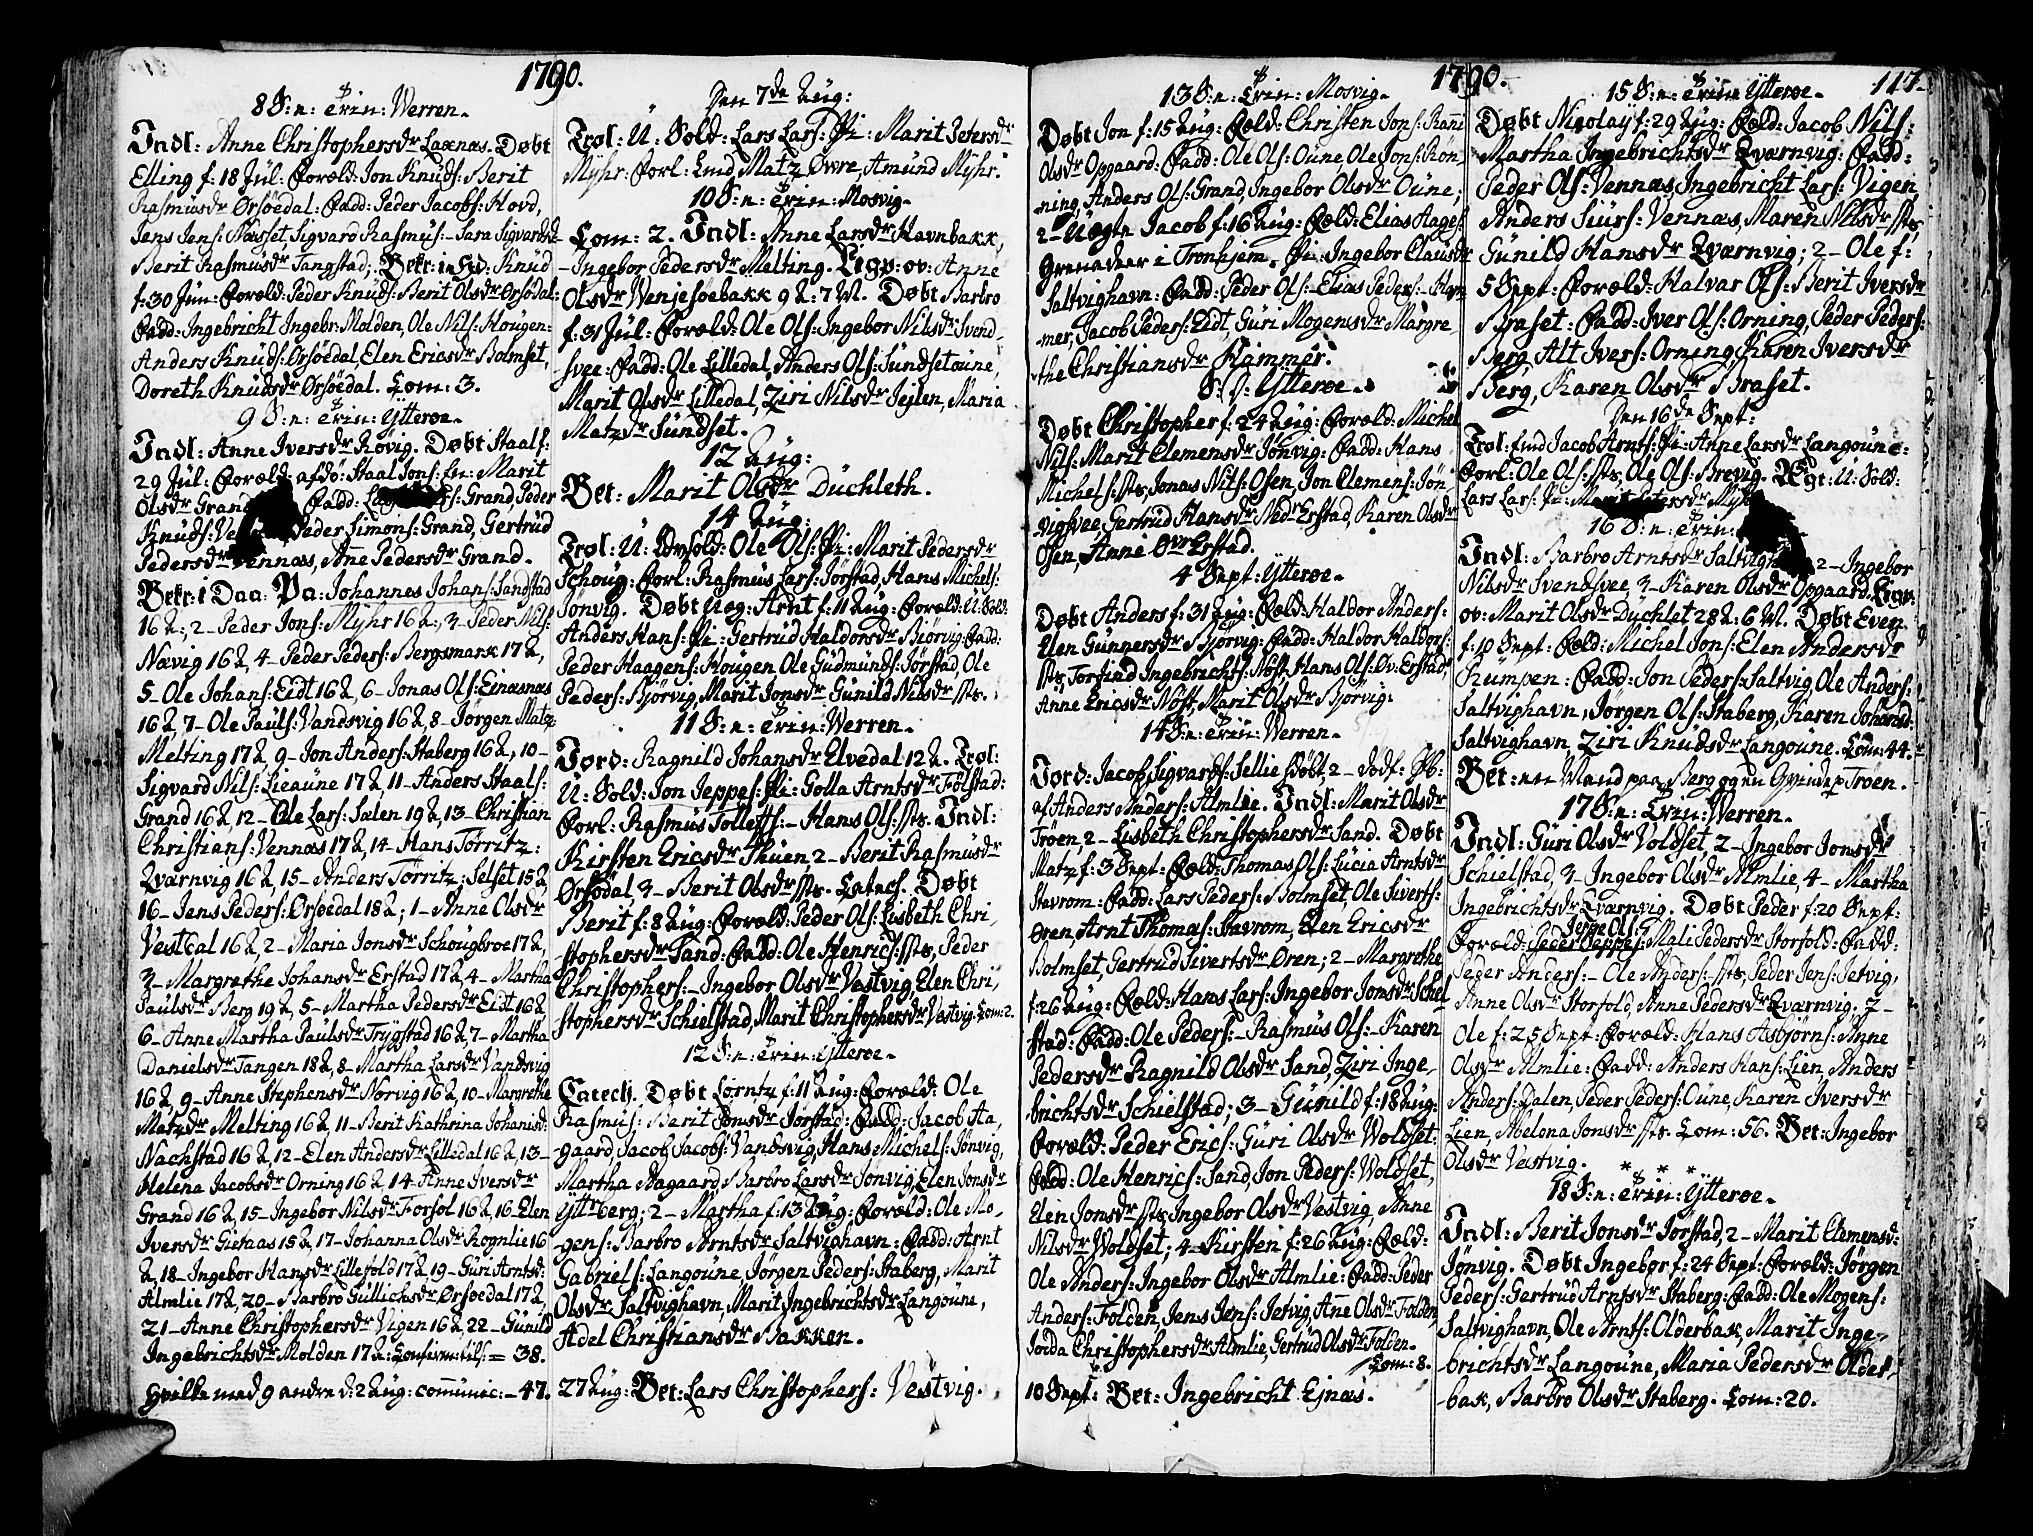 1790.
8 S: n: Trin: Werren.
Indl: Anne Christophersdr Laxnæs. Døbt
Elling f: 18 Jul: Foræld: Jon Knuds: Berit
Rasmusdr Ørsøedal: Fadd: Peder Jacobs: Hovd,
Jens Jens: Næsset, Sigvard Rasmus:- Sara Sigvardsdr
Berit Rasmusdr Tangstad; Bekr: Knud
f: 30 Jun: Foræld: Peder Knuds: Berit Olsdr Ørsødal:
Fadd: Ingebricht Ingebr: Molden, Ole Nils: Hougen:
Anders Knuds: Ørsøedal, Elen Ericsdr Bolmset,
Doreth Knudsdr Ørsøedal. Com: 3.
9 S: n: Trin: Ytterøe.
Indl: Anne Iversdr Røvig. Døbt Staal f:
29 Jul: Foræld: afdø: Staal Jons: Marit
Olsdr Grand Fadd: Grand, Peder
Knuds: Peder Simons: Grand, Gertrud
Pedersdr Vennæs, Anne Pedersdr Grand.
Bekr: i Daa: Pa: Johannes Johans: Sandstad
16 2:, 2- Peder Jons: Myhr 16 2:, 3- Peder Nils:
Nævig 16 2, 4- Peder Peders: Bergsmark 17 2,
5- Ole Johans: Eidt 16 2, 6- Jonas Ols: Einæsnæs
16 2, 7- Ole Pauls: Vandsvig 16 2, 8- Jørgen Matz:
Melting 17 2, 9- Jon Anders: Staberg 16 2, 10-
Sigvard Nils: Lieaune 17 2, 11- Anders Staals:
Grand 16 2, 12- Ole Lars: Salen 19 2, 13- Christian
Christians: Vennæs 17 2, 14- Hans Tørritz:
Qværnvig 16 2, 15- Anders Tørritz: Selset 15 2,
16- Jens Peders: Ørsøedal 18 2; 1- Anne Olsdr
Vestdal 16 2, 2- Maria Jonsdr Schougbroe 17 2,
3- Margrethe Johansdr Erstad 17 2, 4- Martha
Paulsdr Berg 19 2, 5- Martha Pedersdr Eidt 16 2
6- Anne Martha Paulsdr Trygstad 16 2, 7- Martha
Danielsdr Tangen 18 2, 8- Martha Larsdr Vandsvig
16 2, 9- Anne Stephensdr Norvig 16 2, 10- Margrethe
Matzdr Melting 16 2, 11- Berit Kathrina Johansd:
Nachstad 16 2, 12- Elen Andersdr Lilledal 16 2, 13-
Helena Jacobsdr Orning 16 2, 14- Anne Iversdr
Grand 16 2, 15- Ingebor Nilsdr Forsol 16 2, 16- Elen
Iversdr Gietaas 15 2, 17- Johanna Olsdr Rognlie 16
2, 18- Ingebor Hansdr Lillefold 17 2, 19- Guri Arntsd:
Almlie 17 2, 20- Barbro Gullichsdr Ørsøedal 17 2,
21- Anne Christophersdr Vigen 16 2, 22- Gunild
Ingebrichtsdr Molden 17 2: Confirm: tils: = 38.
hvilke med 9 andre d: 2 Aug: communic:- 47.
Den 7de Aug:
Trol: U: Sold: Lars Lars: Pi: Marit Petersdr
Myhr: Forl: Emd Matz Øvre, Amund Myhr.
10 S: n: Trin: Mosvig.
Com: 2. Indl: Anne Larsdr Havnbakk,
- Ingebor Pedersdr Melting. Ligp: ov: Anne
Olsdr Wenjesøebakk 9 2: 7 M. Døbt Barbro
f: 31 Jul: Foræld: Ole Ols: Ingebor Nilsdr Svend-
svee: Fadd: Ole Lilledal, Anders Ols: Sundsetoune,
Marit Olsdr Lilledal, Ziri Nilsdr Jejlen, Maria
Matzdr Sundset.
12 Aug:
Bet: Marit Olsdr Duchleth.
14 Aug:
Trol: U: Sold: Ole Ols: Pi: Marit Pedersdr
Schoug: Forl: Rasmus Lars: Jørstad, Hans Michels:
Jønvig. Døbt Uæg: Arnt f: 11 Aug: Foræld: U: Sold:
Anders Hans: Pi: Gertrud Haldorsdr Biørvig: Fadd:
Peder Haagens: Hougen, Ole Gudmunds: Jørstad, Ole
Peders: Bjørvig, Marit Jonsdr Gunild Nilsdr sts.
11 S: n: Trin: Werren.
Jord: Ragnild Johansdr Elvedal 12 2. Trol:
U: Sold: Jon Jeppes: Pi: Golla Arntsdr Følstad:
Forl: Rasmus Tolleffs:- Hans Ols: sts. Indl:
Kirsten Ericsdr Thuen 2- Berit Rasmusdr
Ørsødal, 3- Berit Olsdr sts. Catech. Døbt
Berit f: 8 Aug: Foræld: Peder Ols: Lisbeth Chri-
stophersdr Sand: Fadd: Ole Henrics: sts, Peder
Christophers:- Ingebor Olsdr Vestvig, Elen Chri-
stophersdr Schielstad, Marit Christophersdr Vestvig. Com: 2.
12 S: n: Trin: Ytterøe.
Catech. Døbt Lorntz f: 11 Aug: Foræld: Ole
Rasmus: Berit Tomsdr Jørstad: Fadd: Jacob Aa-
gaard, Jacob Jacobs: Vandsvig, Hans Michels: Jønvig,
Martha Aagaard, Barbro Larsdr Jønvig, Elen Jonsdr
Ytterberg; 2- Martha f: 13 Aug: Foræld: Ole Mo-
gens: Barbro Arntsdr Saltvighavn: Fadd: Arnt
Gabriels: Langoune, Jørgen Peders: Staberg, Marit
Olsdr Saltvighavn, Marit Ingebrichtsdr Langoune,
Adel Christiansdr Bakken.
27 Aug: Bet: Lars Christophers: Vestvig.
1790.
117.
13 S: n: Trin: Mosvig.
Døbt Jon f: 15 Aug: Fæld: Christen Jons: Rani
Olsdr Opgaard: Fadd: Ole Ols: Oune, Ole Jons: Røn-
ning, Anders Ols: Grand, Ingebor Olsdr Oune;
2- Uægte Jacob f: 16 Aug: Fæld: Elias Aages:
Grenadeer i Tronhjem, Pi: Ingebor Clausdr
Saltvighavn: Fadd: Peder Ols:- Elias Peders:- Ham-
mer, Jacob Peders: Eidt, Guri Mogensdr Margre-
the Christiansdr Hammer.
S: D: Ytterøe.
Døbt Christopher f: 24 Aug: Foræld: Michel
Nils: Marit Clemensdr Jønvig: Fadd: Hans
Michels: sts, Jonas Nils: Osen, Jon Clemens: Jøn-
vigsvee, Gertrud Hansdr Nedr Erstad, Karen Olsdr
Osen, Anne Øvr Erstad.
4 Sept: Ytterøe.
Døbt Anders f: 31 Aug: Fæld: Haldor Anders:
Elen Gunnersdr Bjørvig: Fadd: Haldor Haldors:
sts, Torfind Ingebrichts: Nøst, Hans Ols: Øv: Erstad,
Anne Ericsdr Nøst, Marit Olsdr Bjørvig.
14 S: n: Trin: Werren.
Jord: Jacob Sigvards: Sellie hdøbt, 2- dødf:
af Anders Anders: Almlie. Indl: Marit Olsdr
Trøen, 2- Lisbeth Christophersdr Sand. Døbt
Matz f: 3 Sept: Fæld: Thomas Ols: Lucia Arntsdr
Stavrom: Fadd: Lars Peders: Bolmset, Ole Siverts:
Øren, Arnt Thomæs: Stavrom, Elen Ericsdr
Bolmset, Gertrud Sivertsdr Øren; 2- Margrethe
f: 26 Aug: Fæld: Hans Lars: Ingebor Jonsdr Schel
stad: Fadd: Ole Peders:- Rasmus Ols:- Karen
Pedersdr Ragnild Olsdr Sand, Ziri Inge-
brichtsdr Schielstad; 3- Gunild f: 18 Aug:
Foræld: Peder Erics: Guri Olsdr Woldset:
Fadd: Ole Henrics: Sand, Jon Peders: Woldset,
Elen Jonsdr sts, Ingebor Olsdr Vestvig, Anne
Nilsdr Woldset; 4- Kirsten f: 26 Aug: Fæld:
Ole Anders: Ingebor Olsdr Almlie: Fadd: Peder
Anders: Folden, Jens Jens: Jetvig, Anne Olsdr Folden,
Jorda Christophersdr Almlie, Gertrud Olsdr Folden.
Com: 8.
10 Sept: Bet: Ingebricht Ejnæs.
15 S: n: Trin: Ytterøe.
Døbt Nicolay f: 29 Aug: Fæld: Jacob Nils:
Martha Ingebrichtsdr Qværnvig: Fadd:
Peder Ols: Vennæs, Ingebricht Lars: Vigen
Anders Siurs: Vennæs, Maren Nilsdr sts,
Gunild Hansdr Qværnvig; 2- Ole f:
5 Sept: Foræld: Halvar Ols: Berit Iversdr
Braset: Fadd: Iver Ols: Orning, Peder Peders:
Berg, Alt Ivers: Orning, Karen Iversdr
Berg, Karen Olsdr Braset.
Den 16de Sept:
Trol: Emd Jacob Arnts: Pi: Anne Larsdr Langoune:
Forl: Ole Ols: sts, Ole Ols: Brevig. Ægt: U: Sold:
Lars Lars: Pi: Marit Petersdr Myhr
16 S: n: Trin:
Indl: Barbro Arntsdr Saltvigh 2- Ingebor
Nilsdr Svendsvee, 3- Karen Olsdr Opgaard. Ligp:
ov: Marit Olsdr Duchlet 28 2: 6 M. Døbt Even
f: 10 Sept: Fæld: Michel Jons: Elen Andersdr
Rumpen: Fadd: Jon Peders: Saltvig, Ole Anders:
Saltvighavn, Jørgen Ols: Staberg, Karen Johansd:
Saltvighavn, Ziri Knudsdr Langoune. Com: 44.
Bet: en Mand paa Berg og en Qvinde p Trøen.
17 S: n: Trin: Werren.
Indl: Guri Olsdr Voldset 2- Ingebor Jonsdr
Schielstad, 3- Ingebor Olsdr Almlie, 4- Martha
Ingebrichtsdr Qværnvig. Døbt Peder f: 20 Sept:
Jeppe Ols:
Foræld: Peder Jeppes: Mali Pedersdr Storfold: Fadd:
Peder Anders:- Ole Anders: sts, Peder Jens: Jetvig,
Anne Olsdr Storfold, Anne Pedersdr Qværnvig. 2-
Ole f: 25 Sept: Foræld: Hans Asbjørns: Anne
Olsdr Almlie: Fadd: Anders Hans: Lien, Anders
Anders: Dalen, Peder Peders: Oune, Karen Iversdr
Lien, Melena Jonsdr sts. Com: 56. Bet: Ingebor
Olsdr Vestvig. * * *
18 S: n: Trin: Ytterøe.
Indl: Berit Jonsdr Jørstad, 2- Marit Clemensd:
Jønvig. Døbt Ingebor f: 24 Sept: Foræld: Jørgen
Peders: Gertrud Arntsdr Staberg: Fadd: Ole Mogens:
Saltvighavn, Ole Arnts: Olderbak, Marit Inge-
brichtsdr Langoune, Maria Pedersdr Older-
bak, Barbro Olsdr Staberg. Com: 20.